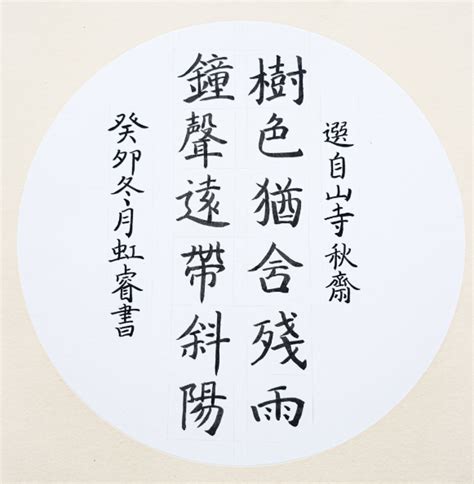 選自山寺秋齋
樹色猶含殘雨
鐘聲遠帶斜陽
癸卯冬月虹睿書